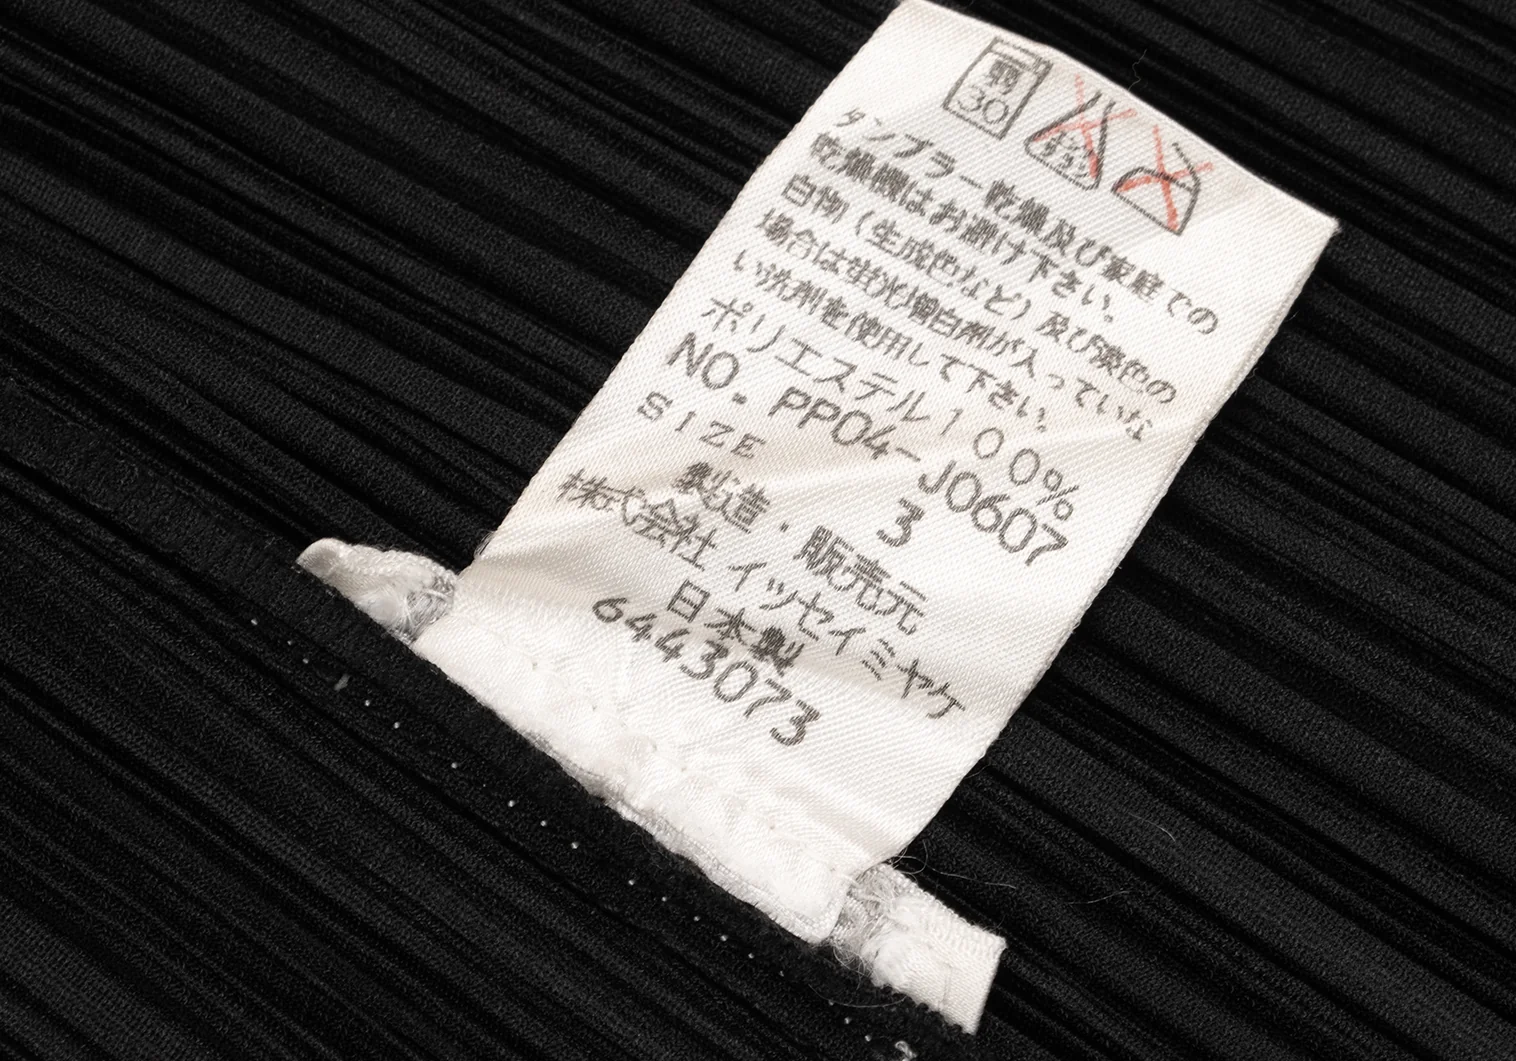 弱
30
エンソ
サラシ
タンブラー乾燥及び家庭での
乾燥機はお避け下さい。
白物(生成色など)及び淡色の
場合は蛍光増白剤が入っていな
い洗剤を使用して下さい。
ポリエステル100%
NO. PP04-J0607
SIZE 3
製造・販売元
株式会社 イッセイミヤケ
日本製
6443073